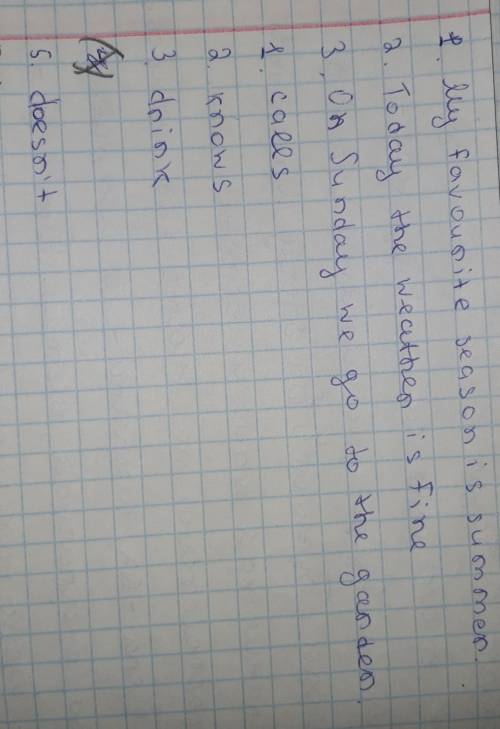 1. My favourite season is summer.
2. Today the weather is fine
3. On Sunday we go to the garden.
1. calls
2. knows
3. drink
5. doesn't